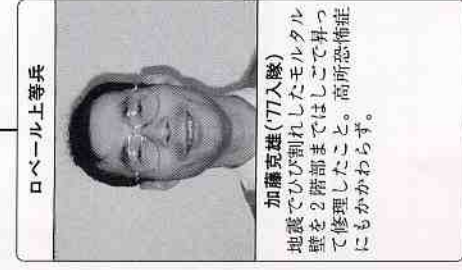 ロベール上等兵
加藤克雄('77入隊)
地震でひび割れしたモルタル
壁を2階部まではしごで昇っ
て修理したこと。高所恐怖症
にもかかわらず。